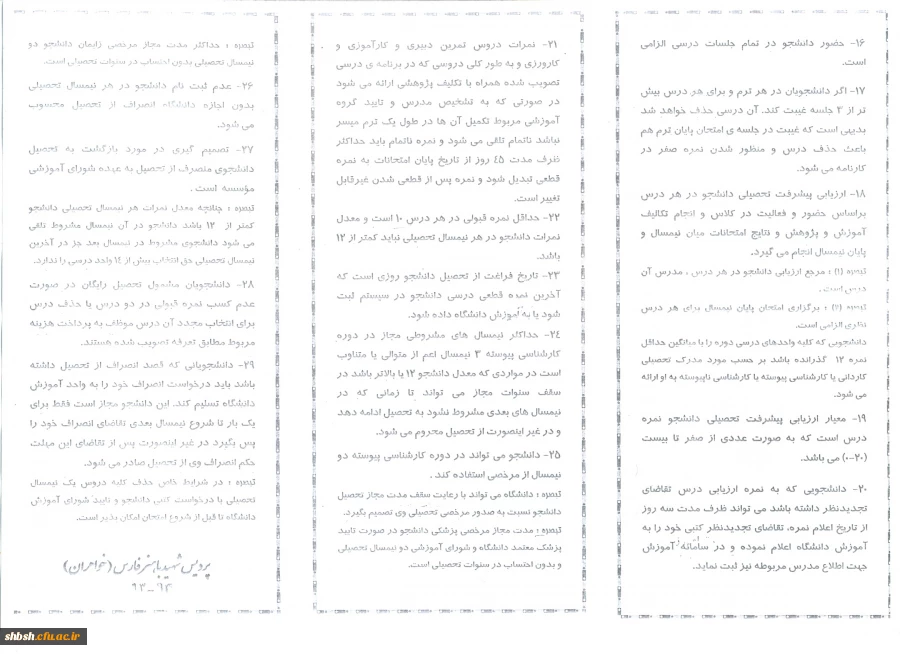 ۱۶- حضور دانشجو در تمام جلسات درسی الزامی
است.
۱۷- اگر دانشجویان در هر ترم و برای هر درس بیش
تر از ۳ جلسه غیبت کند. آن درسی حذف خواهد شد
بدیهی است که غیبت در جلسه ی امتحان پایان ترم هم
باعث حذف درس و منظور شدن نمره صفر در
کارنامه می شود.
۱۸- ارزیابی پیشرفت تحصیلی دانشجو در هر درس
براساس حضور و فعالیت در کلاس و انجام تکالیف
آموزش و پژوهش و نتایج امتحانات میان نیمسال و
پایان نیمسال انجام می گیرد.
تبصره (۱) : مرجع ارزیابی دانشجو در هر درس ، مدرس آن
درس است .
تبصره (۲) : برگزاری امتحان پایان نیمسال برای هر درس
نظری الزامی است.
دانشجویی که کلیه واحدهای درسی دوره را با میانگین حداقل
نمره ۱۲ گذرانده باشد بر حسب مورد مدرک تحصیلی
کاردانی یا کارشناسی پیوسته یا کارشناسی ناپیوسته به او ارائه
می شود.
۱۹- معیار ارزیابی پیشرفت تحصیلی دانشجو نمره
درس است که به صورت عددی از صفر تا بیست
(۲۰-۰) می باشد.
۲۰- دانشجویی که به نمره ارزیابی درس تقاضای
تجدیدنظر داشته باشد می تواند ظرف مدت سه روز
از تاریخ اعلام نمره، تقاضای تجدیدنظر کتبی خود را به
آموزش دانشگاه اعلام نموده و در سامانه آموزش
جهت اطلاع مدرس مربوطه نیز ثبت نماید.
۲۱- نمرات دروس تمرین دبیری و کارآموزی و
کارورزی و به طور کلی دروسی که در برنامه ی درسی
تصویب شده همراه با تکلیف پژوهشی ارائه می شود
در صورتی که به تشخیص مدرس و تایید گروه
آموزشی مربوط تکمیل آن ها در طول یک ترم میسر
نباشد ناتمام تلقی می شود و نمره ناتمام باید حداکثر
ظرف مدت ۴۵ روز از تاریخ پایان امتحانات به نمره
قطعی تبدیل شود و نمره پس از قطعی شدن غیرقابل
تغییر است.
۲۲- حداقل نمره قبولی در هر درس ۱۰ است و معدل
نمرات دانشجو در هر نیمسال تحصیلی نباید کمتر از ۱۲
باشد.
۲۳- تاریخ فراغت از تحصیل دانشجو روزی است که
آخرین نمره قطعی درسی دانشجو در سیستم ثبت
شود یا به آموزش دانشگاه داده شود.
۲۴- حداکثر نیمسال های مشروطی مجاز در دوره
کارشناسی پیوسته ۳ نیمسال اعم از متوالی یا متناوب
است در مواردی که معدل دانشجو ۱۲ یا بالاتر باشد در
سقف سنوات مجاز می تواند تا زمانی که در
نیمسال های بعدی مشروط نشود به تحصیل ادامه دهد
و در غیر اینصورت از تحصیل محروم می شود.
۲۵- دانشجو می تواند در دوره کارشناسی پیوسته دو
نیمسال از مرخصی استفاده کند .
تبصره : دانشگاه می تواند با رعایت سقف مدت مجاز تحصیل
دانشجو نسبت به صدور مرخصی تحصیلی وی تصمیم بگیرد.
تبصره : مدت مجاز مرخصی پزشکی دانشجو در صورت تایید
پزشک معتمد دانشگاه و شورای آموزشی دو نیمسال تحصیلی
و بدون احتساب در سنوات تحصیلی است.
تبصره : حداکثر مدت مجاز مرخصی زایمان دانشجو دو
نیمسال تحصیلی بدون احتساب در سنوات تحصیلی است.
۲۶- عدم ثبت نام دانشجو در هر نیمسال تحصیلی
بدون اجازه دانشگاه انصراف از تحصیل محسوب
می شود.
۲۷- تصمیم گیری در مورد بازگشت به تحصیل
دانشجوی منصرف از تحصیل به عهده شورای آموزشی
مؤسسه است .
تبصره : چنانچه معدل نمرات هر نیمسال تحصیلی دانشجو
کمتر از ۱۲ باشد دانشجو در آن نیمسال مشروط تلقی
می شود دانشجوی مشروط در نیمسال بعد جز در آخرین
نیمسال تحصیلی حق انتخاب بیش از ۱۴ واحد درسی را ندارد.
۲۸- دانشجویان مشمول تحصیل رایگان در صورت
عدم کسب نمره قبولی در دو درس یا حذف درس
برای انتخاب مجدد آن درس موظف به پرداخت هزینه
مربوط مطابق تعرفه تصویب شده هستند.
۲۹- دانشجویانی که قصد انصراف از تحصیل داشته
باشد باید درخواست انصراف خود را به واحد آموزش
دانشگاه تسلیم کند. این دانشجو مجاز است فقط برای
یک بار تا شروع نیمسال بعدی تقاضای انصراف خود را
پس بگیرد در غیر اینصورت پس از تقاضای این مهلت
حکم انصراف وی از تحصیل صادر می شود.
تبصره : در شرایط خاص حذف کلیه دروس یک نیمسال
تحصیلی با درخواست کتبی دانشجو و تایید شورای آموزش
دانشگاه تا قبل از شروع امتحان امکان پذیر است.
پردیس شهید باهنر فارس (خواهران)
۹۳-۹۴
shbsh.cfu.ac.ir